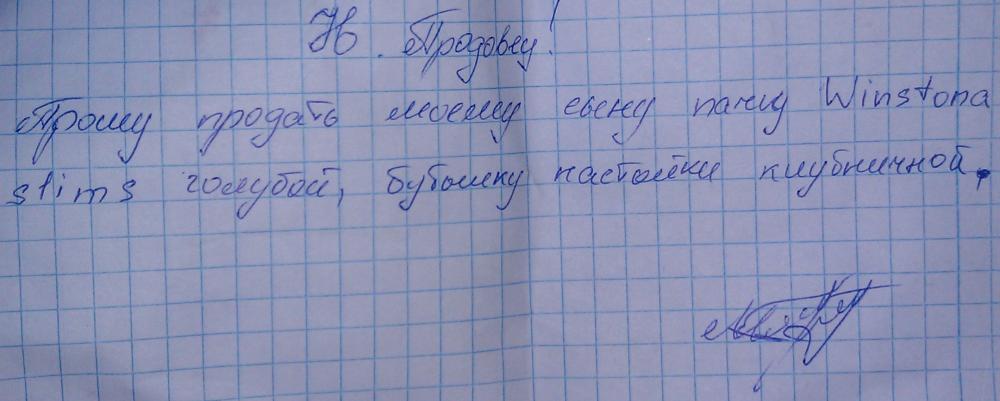 Ув. Продавец!
Прошу продать моему сыну пачку Winstona
slims голубой, бутылку настойки клубничной.